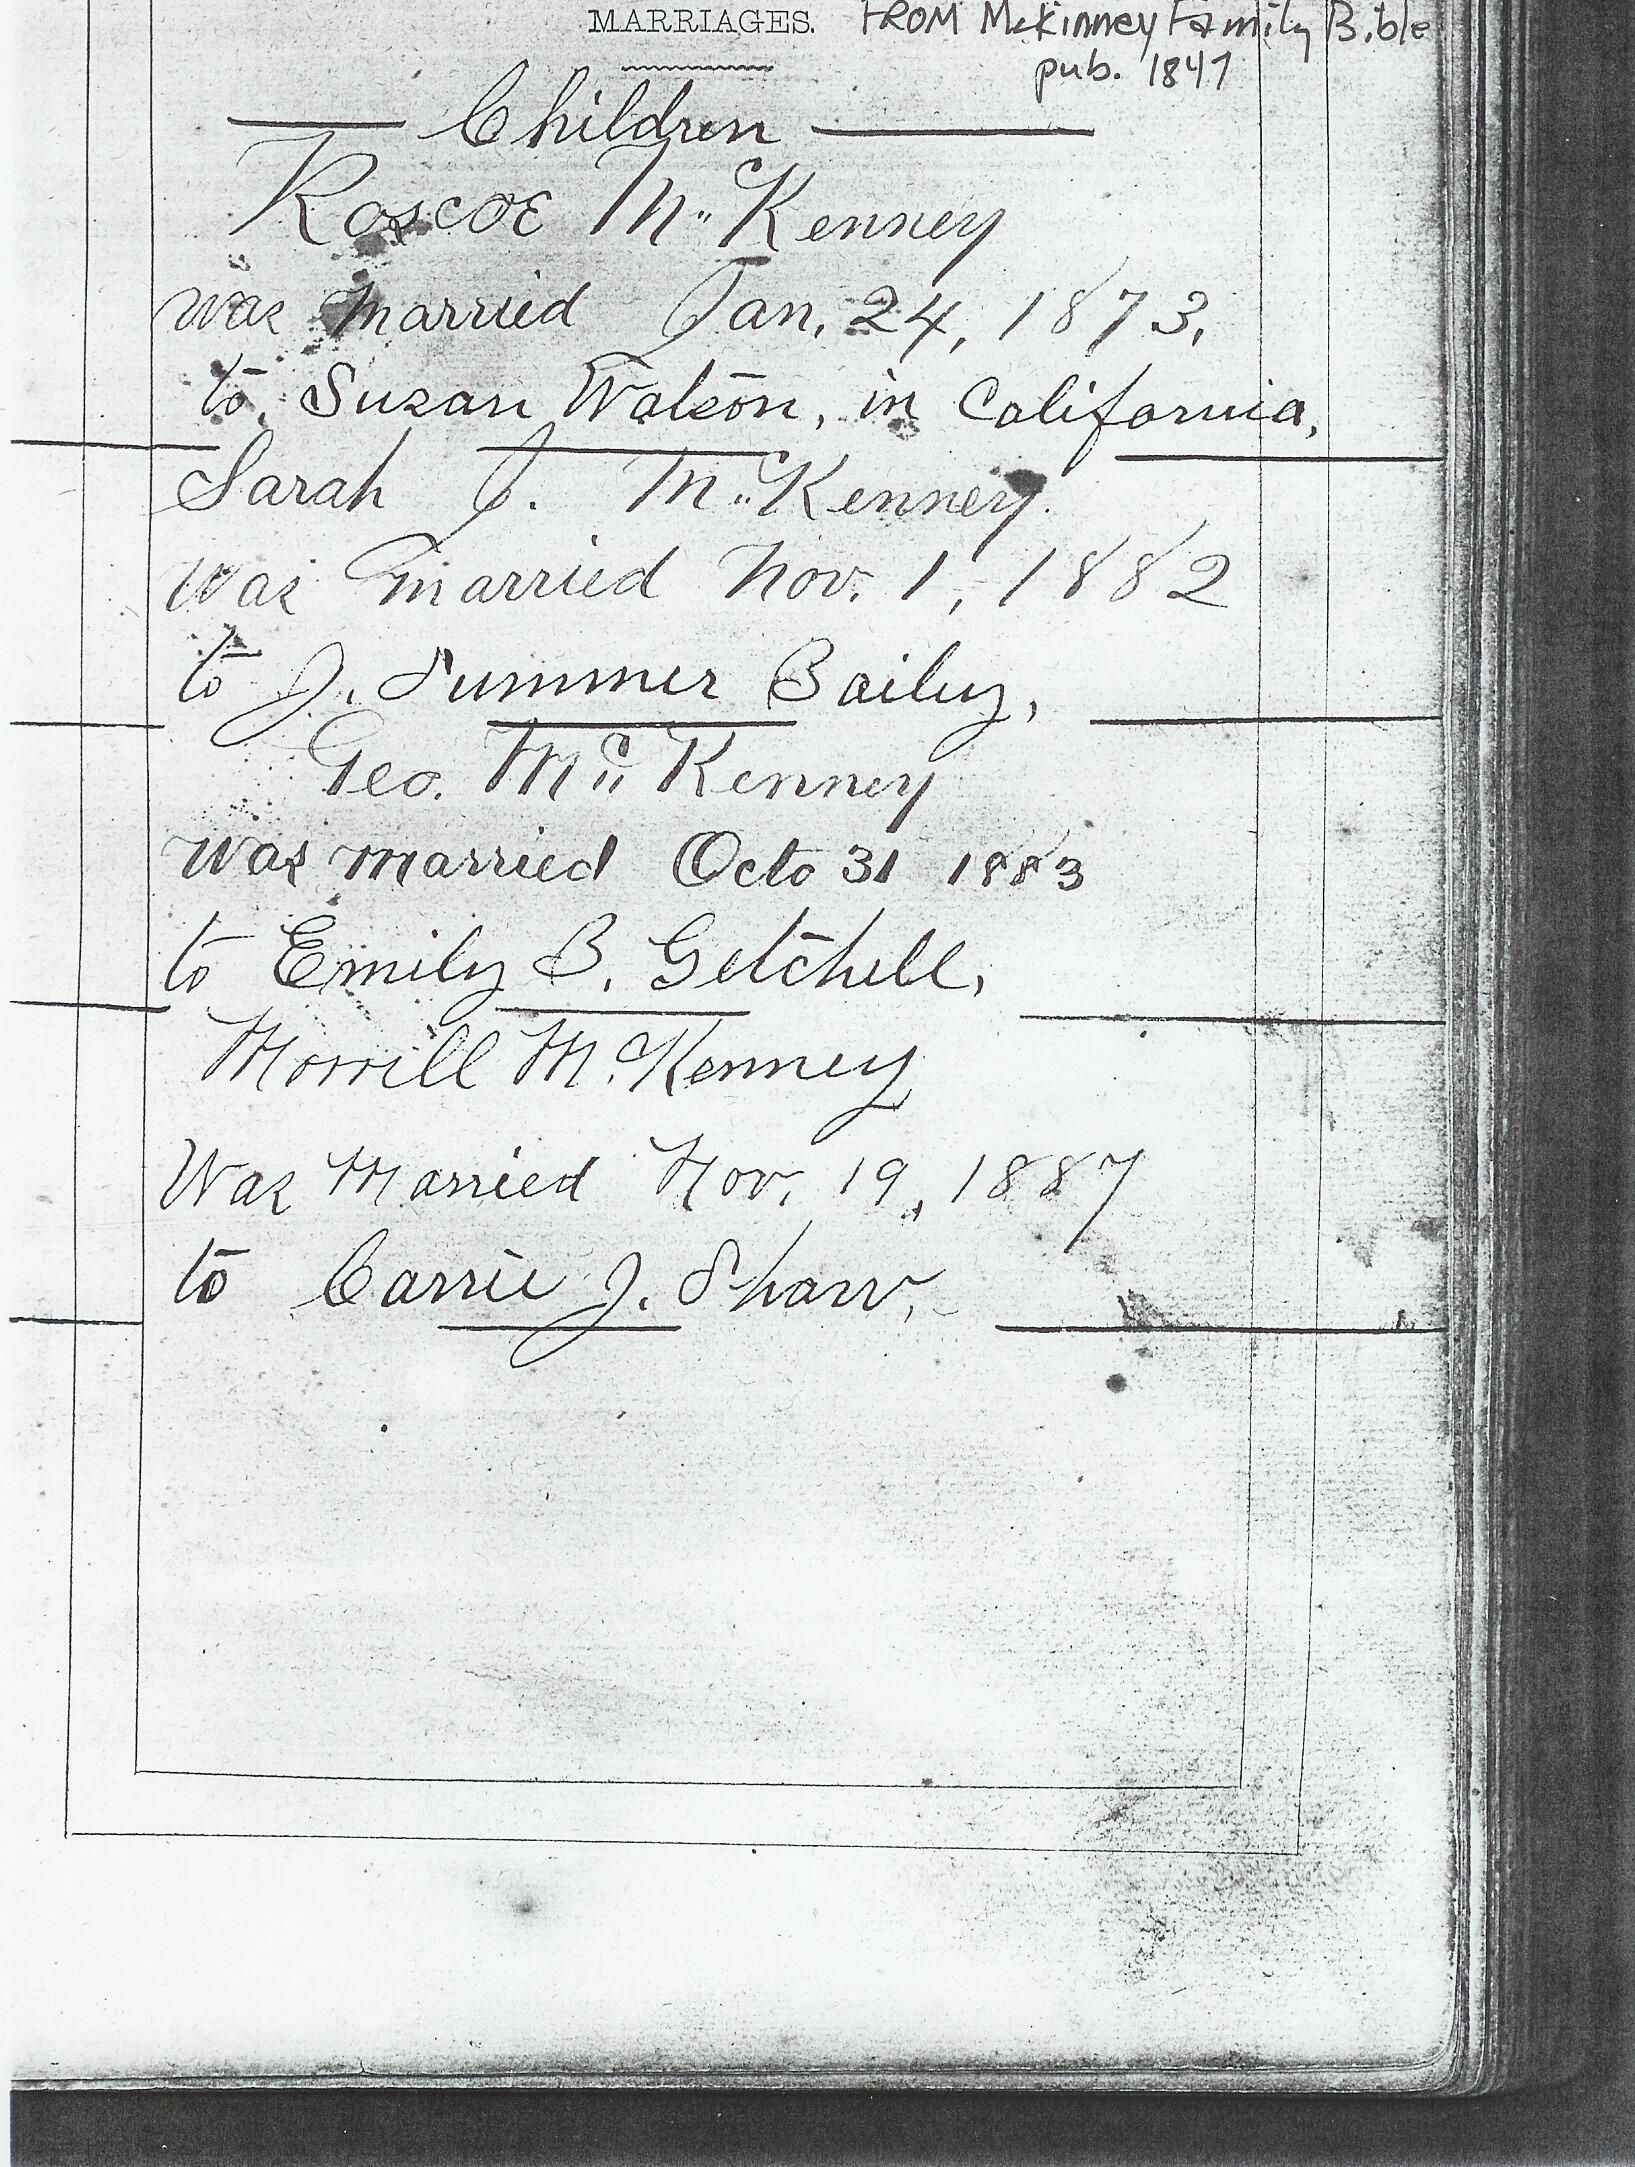 MARRIAGES. FROM McKinney Family Bible
pub. 1847
Children
Roscoe Mc Kenney
was married Jan. 24, 1873,
to, Susan Watson, in California,
Sarah J. Mc Kenney.
was married Nov. 1, 1882
to J. Summer Bailey,
Geo. Mc Kenney
was married Octo 31 1883
to Emily B. Getchell,
Morrill Mc Kenney
Was Married Nov. 19, 1887
to Carrie J. Shaw,